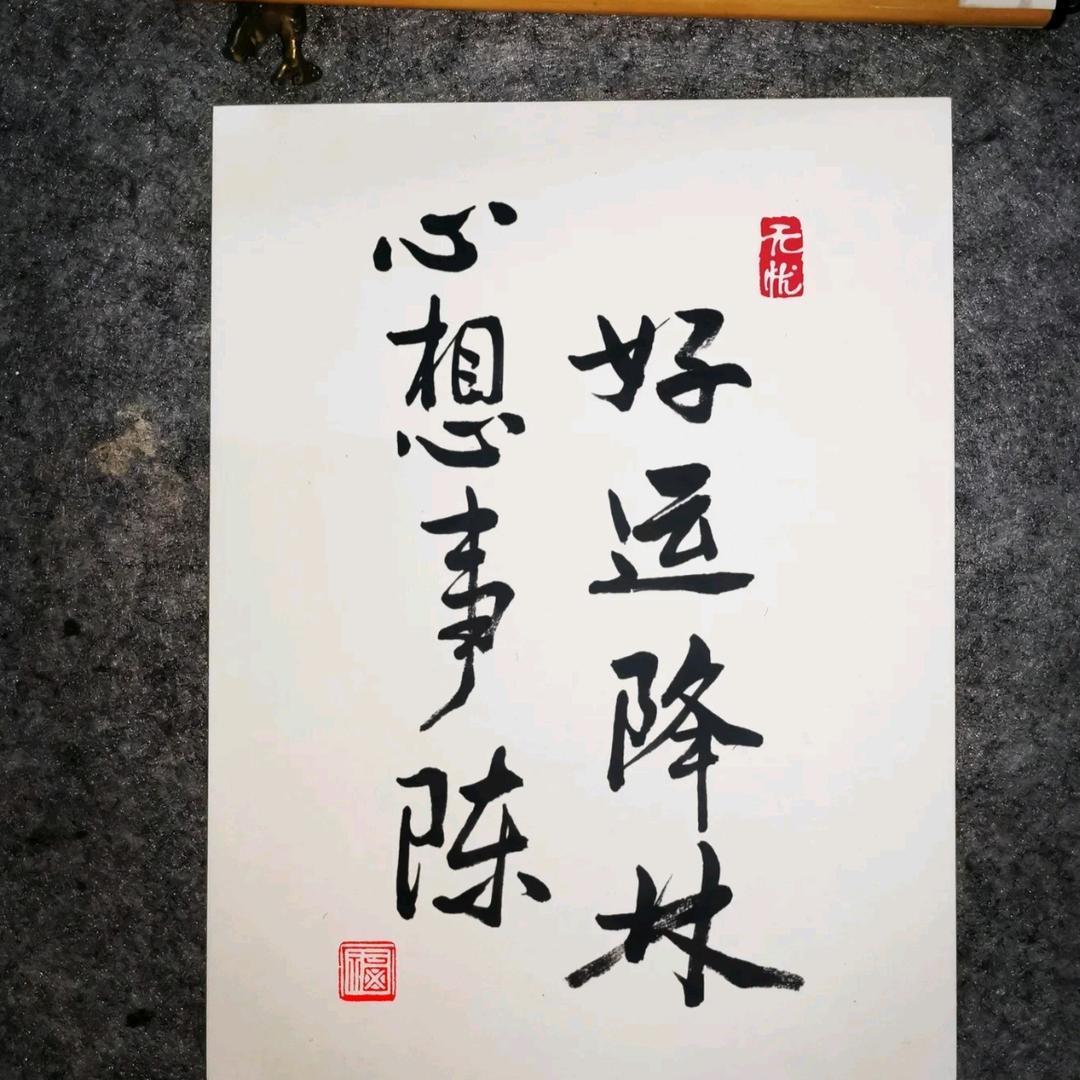 无忧
好运降林
心想事陈